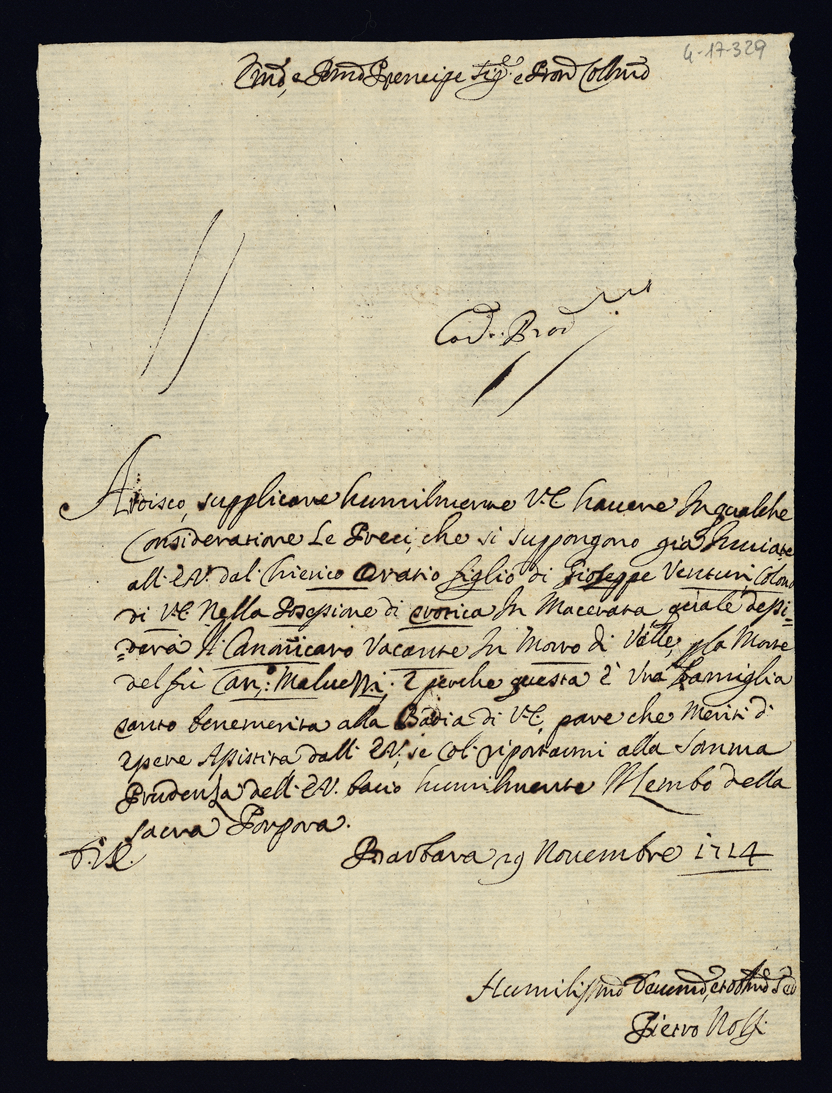 4-17-329
Emo, e Rmo Prencipe Sigre e Pron Colmo
Ardisco, supplicare humilmente V.E. hauere In qualche
Consideratione Le Preci, che si suppongono già Inuiate
all. E.V. dal Chierico Oratio figlio di Gioseppe Venturi, Colono
di V.E. Nella Possessione di In Macerata quale desi-
dera il Canonicato Vacante In Morro di Valle, p la Morte
del fù Can.o Maluezzi. E perche questa è Vna famiglia
tanto benemerita alla Badia di V.E. pare che Meriti d
essere Assistita dall. E.V., se Col riportarmi alla Somma
Prudenza dell. E.V. bacio humilmente Il Lembo della
Sacra Porpora.
D.V.E. Barbara 29 Nouembre 1714
Humilissmo Deuimo, et oblmo Seu
Pietro